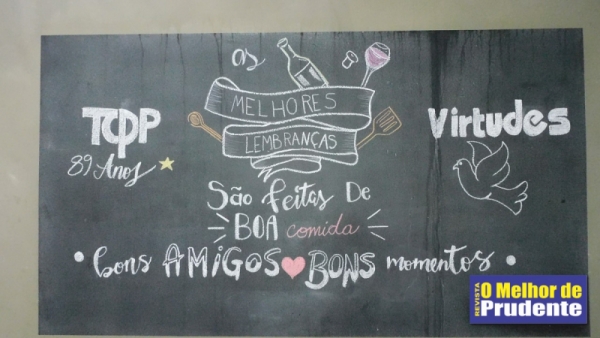 as
MELHORES
LEMBRANÇAS
TOP
89 Anos
Virtudes
São feitas De
BOA comida
• bons AMIGOS BONS momentos •
REVISTA
O Melhor de
Prudente